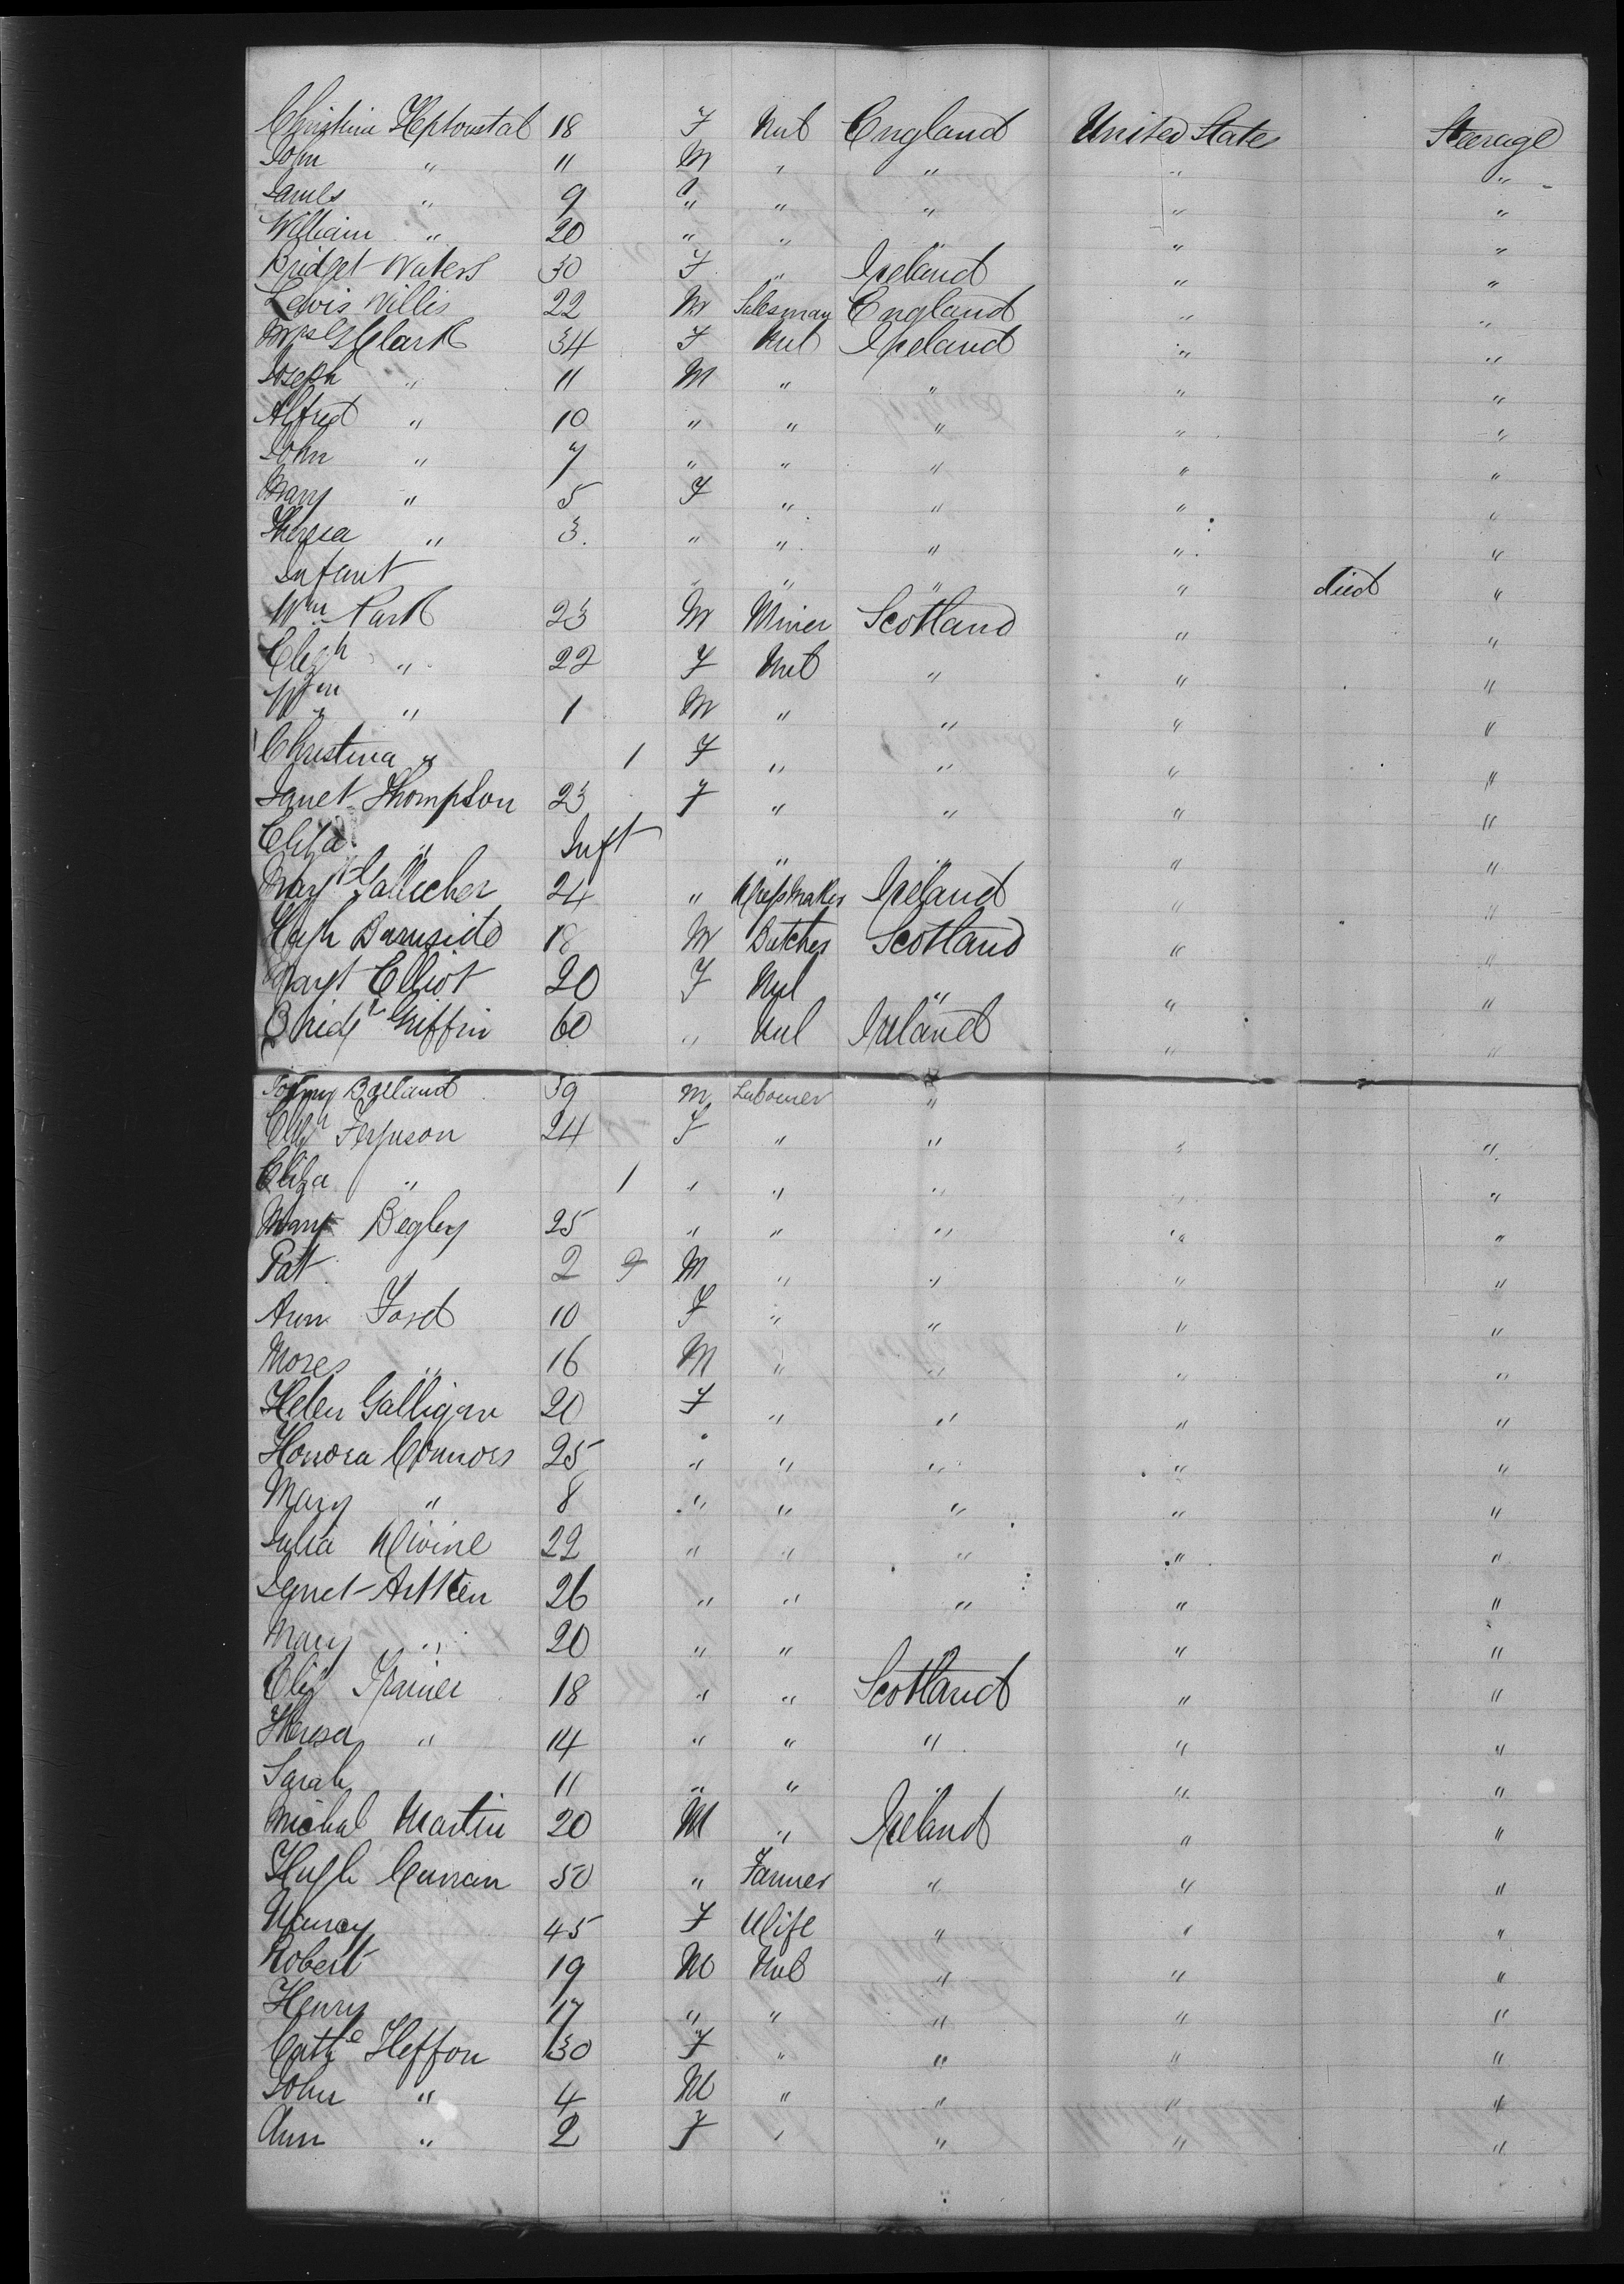 Christina Heptonstal 18 F Nul England United States Steerage
John " 11 M " " " "
James " 9 " " " " "
William " 20 " " " " "
Bridget Waters 30 F " Ireland " "
Lewis Willis 22 M Salesman England " "
Mrs Clark 34 F Nul Ireland " "
Joseph " 11 M " " " "
Alfred " 10 " " " " "
John " 7 " " " " "
Mary " 5 F " " " "
Theresa " 3 " " " " "
Infant " " " " died "
Wm Park 23 M Miner Scotland " "
Elizh " 22 F Nul " " "
Wm " 1 M " " " "
Christina " 1 F " " " "
Janet Thompson 23 F " " " "
Eliza " Inft " " " "
Mary Gallecher 24 " Dressmaker Ireland " "
Hugh Burnside 18 M Butcher Scotland " "
Margt Elliot 20 F Nul " " "
Bridgt Griffin 60 " Nul Ireland " "
Boland 39 M Labourer "
Elizh Ferguson 24 F " " " "
Eliza " 1 " " " " "
Mary Begley 25 " " " " "
Pat 2 M " " " "
Ann Ford 10 F " " " "
Moses " 16 M " " " "
Helen Galligan 20 F " " " "
Honora Connors 25 " " " " "
Mary " 8 " " " " "
Julia Divine 22 " " " " "
Janet Aitken 26 " " " " "
Mary " 20 " " " "
Eliz Trainer 18 " " Scotland " "
Theresa " 14 " " " " "
Sarah 11 " " " " "
Michal Martin 20 M " Ireland " "
Hugh Curran 50 " Farmer " " "
Nancy 45 F Wife " " "
Robert 19 M Nul " " "
Henry 17 " " " " "
Cathe Heffon 30 F " " " "
John " 4 M " " " "
Ann " 2 F " " " "